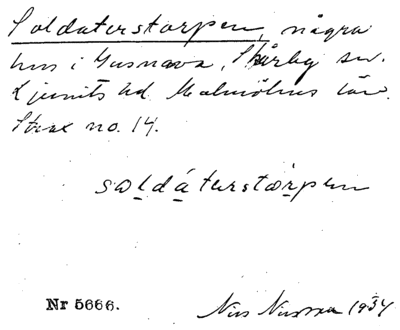 Soldaterstorpen, några
hus i Gusnava, Skårby sn.
Ljunits hd Malmöhus län.
Strax no. 14.
soldáterstorpen
Nr 5666.
Nils Nilsson 1934